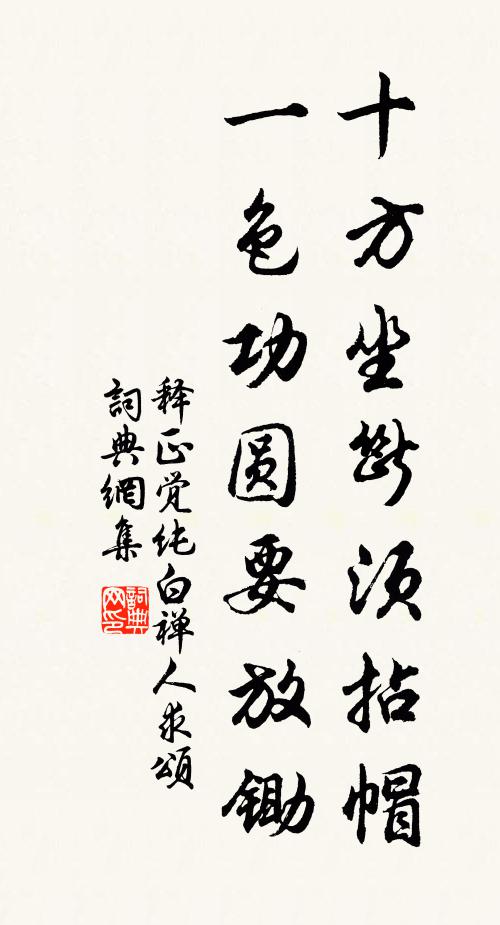 十方坐断须拈帽
一色功圆要放锄
释正觉纯白禅人求颂
詞典網集
詞典网印